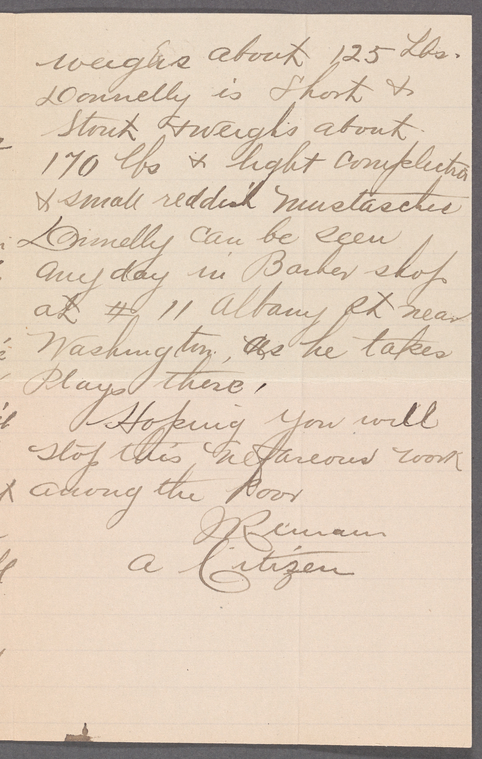 weighs about 125 Lbs.
Donnelly is Short &
Stout & weighs about
170 lbs & light complection
& small reddish mustasche
Donnelly can be seen
any day in Barber shop
at # 11 Albany St near
Washington, as he takes
Plays there,
Hoping you will
stop this nefareous work
among the Poor
I Remain
a Citizen